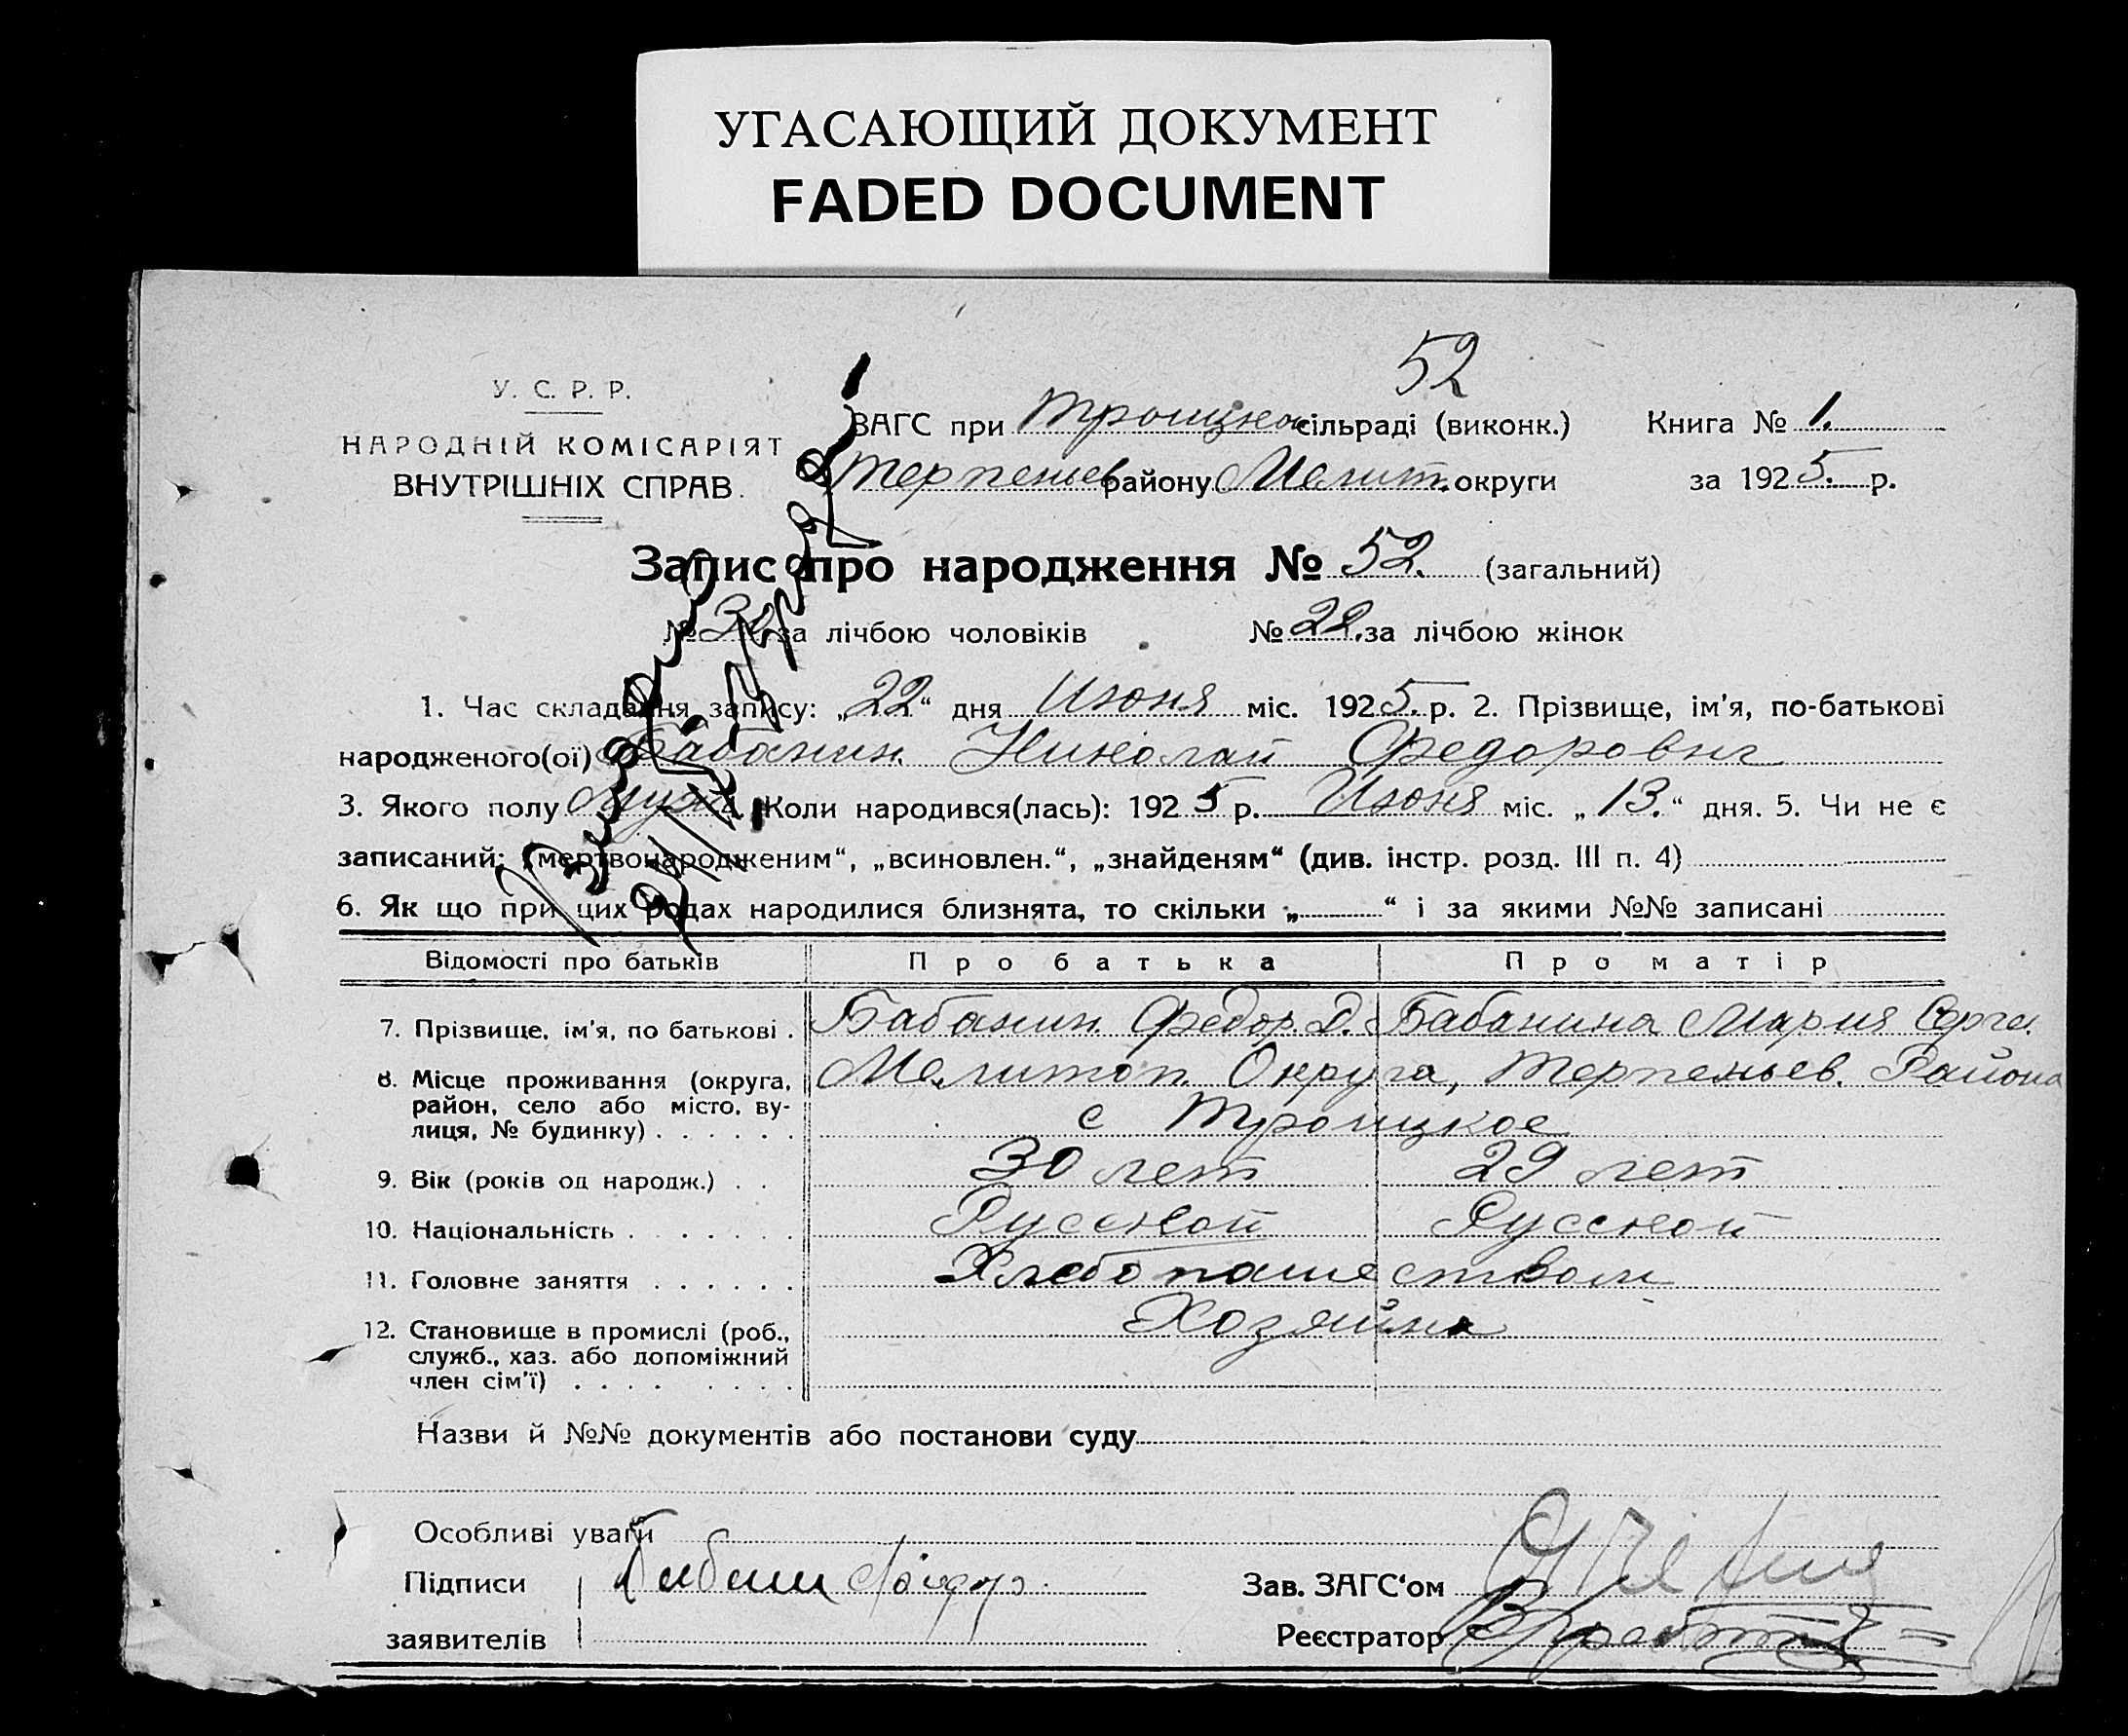 УГАСАЮЩИЙ ДОКУМЕНТ
FADED DOCUMENT
52
У. С. Р. Р.
НАРОДНІЙ КОМІСАРІЯТ
ВНУТРІШНІХ СПРАВ.
ЗАГС при Троицком сільраді (виконк.) Книга № 1.
Терпеньев району Мелит. округи за 1925. р.
Запис про народження № 52. (загальний)
№ 30. за лічбою чоловіків № 22. за лічбою жінок
1. Час складання запису: „22“ дня Июня міс. 1925. р. 2. Прізвище, ім'я, по-батькові
народженого(ої) Бабанин Николай Федорович
3. Якого полу Муж 4. Коли народився(лась): 1925 р. Июня міс. „13.“ дня. 5. Чи не є
записаний: „мертвонародженим“, „всиновлен.“, „знайденям“ (див. інстр. розд. III п. 4)
6. Як що при цих родах народилися близнята, то скільки „ “ і за якими №№ записані
Відомості про батьків Про батька Про матір
7. Прізвище, ім'я, по батькові . Бабанин Федор. Д. Бабанина Мария Серге.
8. Місце проживання (округа, Мелитоп. Округа, Терпеньев. Района
район, село або місто, ву-
лиця, № будинку) . . . . . . с Троицкое
9. Вік (років од народж.) . . 30 лет 29 лет
10. Національність . . . . . . . Русской Русской
11. Головне заняття . . . . . . Хлебопашеством
12. Становище в промислі (роб., Хозяйна
служб., хаз. або допоміжний
член сім'ї) . . . . . . . .
Назви й №№ документів або постанови суду
Особливі уваги
Підписи
Зав. ЗАГС‘ом
заявителів
Реєстратор